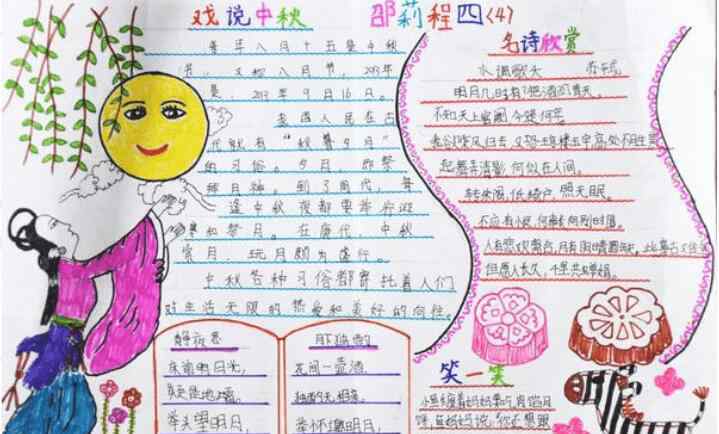 戏说中秋
邵莉程四(4)
每年八月十五是中秋
节，又称八月节，2013年
是，2013年9月16日。
我国人民在古
代就有"秋暮夕月"
的习俗。夕月，即祭
拜月神。到了周代，每
逢中秋夜都要举行迎
寒和祭月。在唐代，中秋
赏月、玩月颇为盛行。
中秋各种习俗都寄托着人们
对生活无限的热爱和美好的向往。
静夜思
床前明月光，
疑是地上霜。
举头望明月，
月下独酌
花间一壶酒，
独酌无相亲。
举杯邀明月，
名诗欣赏
水调歌头 苏轼
明月几时有？把酒问青天。
不知天上宫阙，今夕是何年。
我欲乘风归去，又恐琼楼玉宇，高处不胜寒
起舞弄清影，何似在人间。
转朱阁，低绮户，照无眠。
不应有恨，何事长向别时圆。
人有悲欢离合，月有阴晴圆缺，此事古难全
但愿人长久，千里共婵娟。
笑一笑